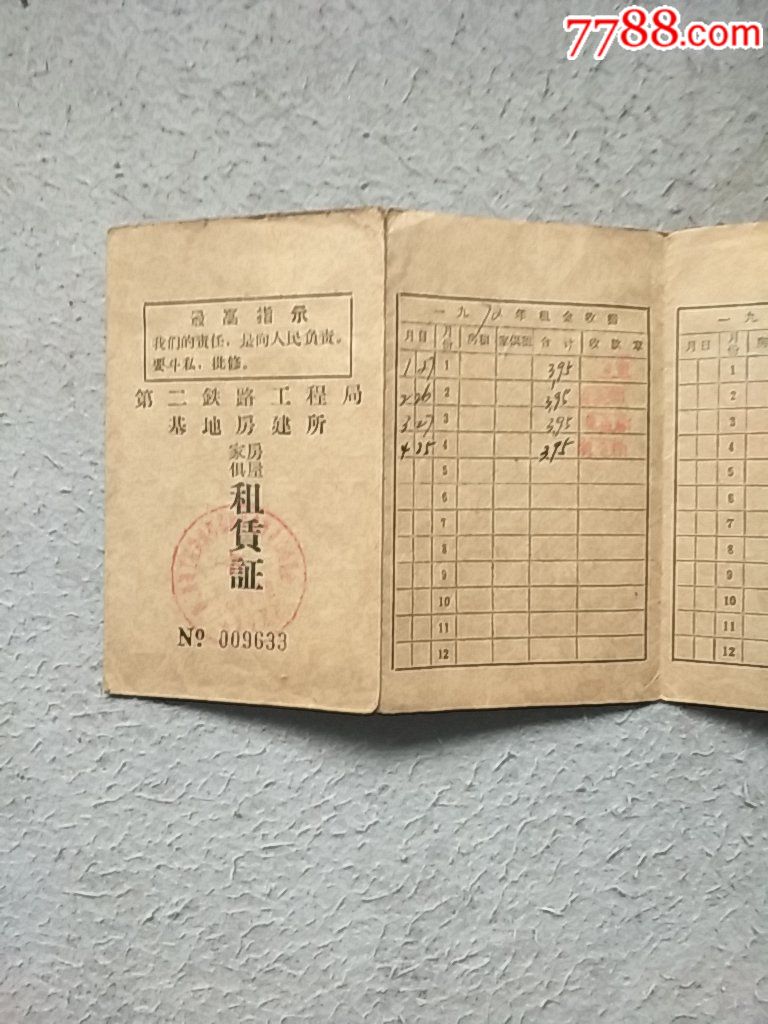 7788.com
最高指示
我们的责任，是向人民负责。
要斗私，批修。
第二鉄路工程局
基地房建所
房屋
家俱
租賃証
№ 009633
一九70年租金收据
月 日 月份 房租 家俱租 合计 收款章
1 27 1 3.95
2 26 2 3.95
3 27 3 3.95
4 25 4 3.95
5
6
7
8
9
10
11
12
一九
月 日 月份 房
1
2
3
4
5
6
7
8
9
10
11
12